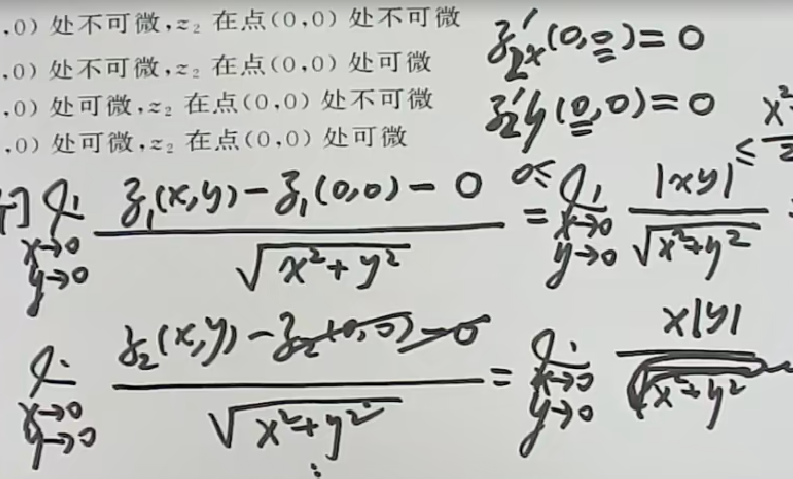 ,0) 处不可微,z₂ 在点(0,0) 处不可微
,0) 处不可微,z₂ 在点(0,0) 处可微
,0) 处可微,z₂ 在点(0,0) 处不可微
,0) 处可微,z₂ 在点(0,0) 处可微
z₂'x(0,0)=0
z₂'y(0,0)=0
lim x→0 y→0 (z₁(x,y)-z₁(0,0)-0)/√(x²+y²) = 0≤ lim x→0 y→0 |xy|/√(x²+y²) ≤ x²
lim x→0 y→0 (z₂(x,y)-z₂(0,0)-0)/√(x²+y²) = lim x→0 y→0 x|y|/√(x²+y²)